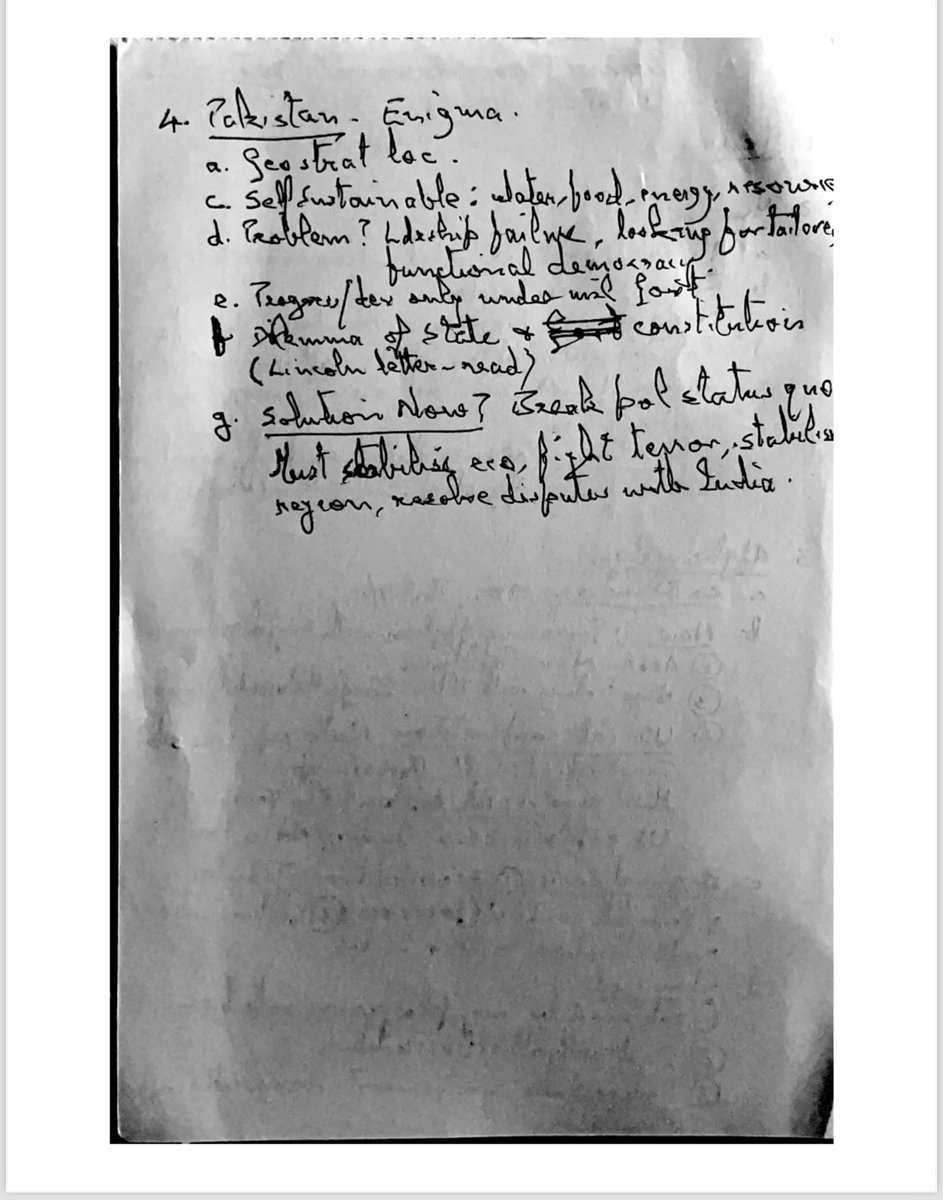 4. Pakistan - Enigma.
a. Geostrat loc.
c. Self Sustainable: water, food, energy, resource
d. Problem? Ldrship failure, looking for tailored
functional democracy.
e. Progress/dev only under mil Govt
f Dilemma of State & constitution
(Lincoln letter - read)
g. Solution Now? Break pol status quo
Must stabilise eco, fight terror, stabilise
region, resolve disputes with India.